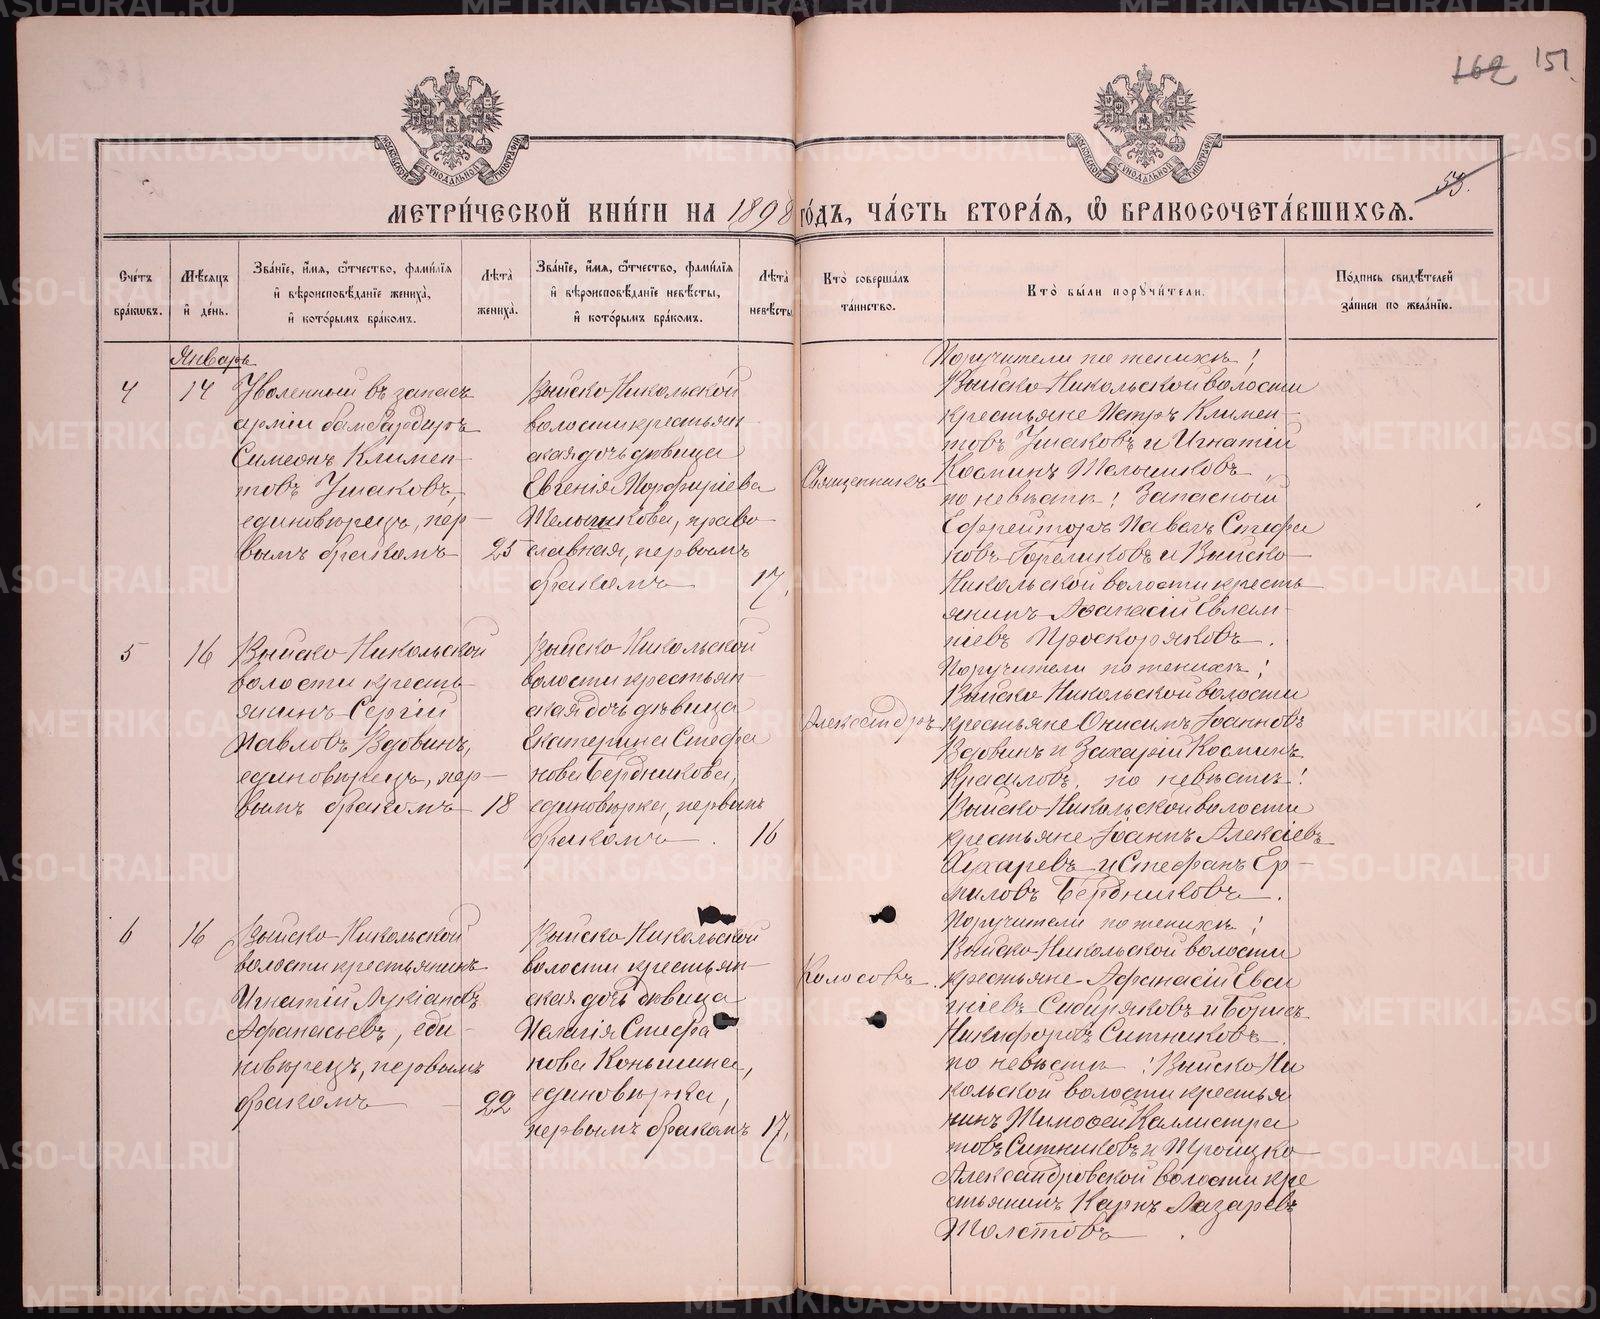 162 151.
59.
МОСКОВСКОЙ СѴНОДАЛЬНОЙ ТИПОГРАФІИ
МОСКОВСКОЙ СѴНОДАЛЬНОЙ ТИПОГРАФІИ
МЕТРИ́ЧЕСКОЙ КНИ́ГИ НА 1898 ГО́ДЪ, ЧА́СТЬ ВТОРА́Я, Ѿ БРАКОСОЧЕТА́ВШИХСЯ.
Сче́тъ бра́кѡвъ.
Мѣ́сяцъ и҆ де́нь.
Зва́нїе, и҆́мя, ѻ҆́тчество, фами́лїя и҆ вѣроисповѣ́данїе жениха̀, и҆ кото́рымъ бра́комъ.
Лѣ́та жениха̀.
Зва́нїе, и҆́мя, ѻ҆́тчество, фами́лїя и҆ вѣроисповѣ́данїе невѣ́сты, и҆ кото́рымъ бра́комъ.
Лѣ́та невѣ́сты
Кто̀ соверша́лъ та́инство.
Кто̀ бы́ли порꙋчи́тели.
По́дпись свидѣ́телей за́писи по жела́нїю.
Январь
4
14
Уволенный въ запасъ
арміи бамбардиръ
Симеонъ Климен-
товъ Ушаковъ,
единовѣрецъ, пер-
вымъ бракомъ
25
Выйско-Никольской
волости крестьян-
ская дочь дѣвица
Евгенія Порфиріева
Мельникова, право-
славная, первымъ
бракомъ
17.
Священникъ
Поручители по женихѣ:
Выйско-Никольской волости
крестьяне Петръ Климен-
товъ Ушаковъ и Игнатій
Косминъ Мельниковъ
по невѣстѣ: Запасный
Ефрейторъ Павелъ Стефа
новъ Гореликовъ и Выйско-
Никольской волости кресть
янинъ Аѳанасій Евлам-
піевъ Проскоряковъ.
5
16
Выйско-Никольской
волости кресть-
янинъ Сергій
Павловъ Вдовинъ,
единовѣрецъ, пер-
вымъ бракомъ
18
Выйско-Никольской
волости крестьян-
ская дочь дѣвица
Екатерина Стефа
нова Бердникова,
единовѣрка, первымъ
бракомъ.
16
Александръ
Поручители по женихѣ:
Выйско-Никольской волости
крестьяне Онисимъ Іоанновъ
Вдовинъ и Захарій Косминъ
по невѣстѣ:
Выйско-Никольской волости
крестьяне Іоаннъ Алексіевъ
и Стефанъ Ер-
миловъ Бердниковъ.
6
16
Выйско-Никольской
волости крестьянинъ
Игнатій Лукіановъ
Афанасьевъ, еди-
новѣрецъ, первымъ
бракомъ
22
Выйско-Никольской
волости крестьян-
ская дочь дѣвица
Пелагія Стефа
нова Коньшина,
единовѣрка,
первымъ бракомъ
17.
Колосовъ.
Поручители по женихѣ:
Выйско-Никольской волости
крестьяне Афанасій
Сибиряковъ и Борисъ
Никифоровъ Ситниковъ.
по невѣстѣ: Выйско-Ни
кольской волости крестья
нинъ Тимоѳей Каллистра
товъ Ситниковъ и Троицко-
Александровской волости кре
стьянинъ Карпъ Лазаревъ
Толстовъ.
METRIKI.GASO-URAL.RU